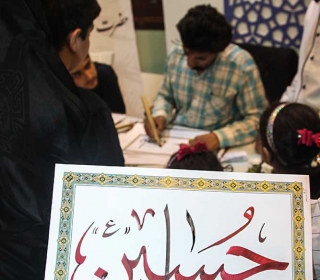 حسین «ع»